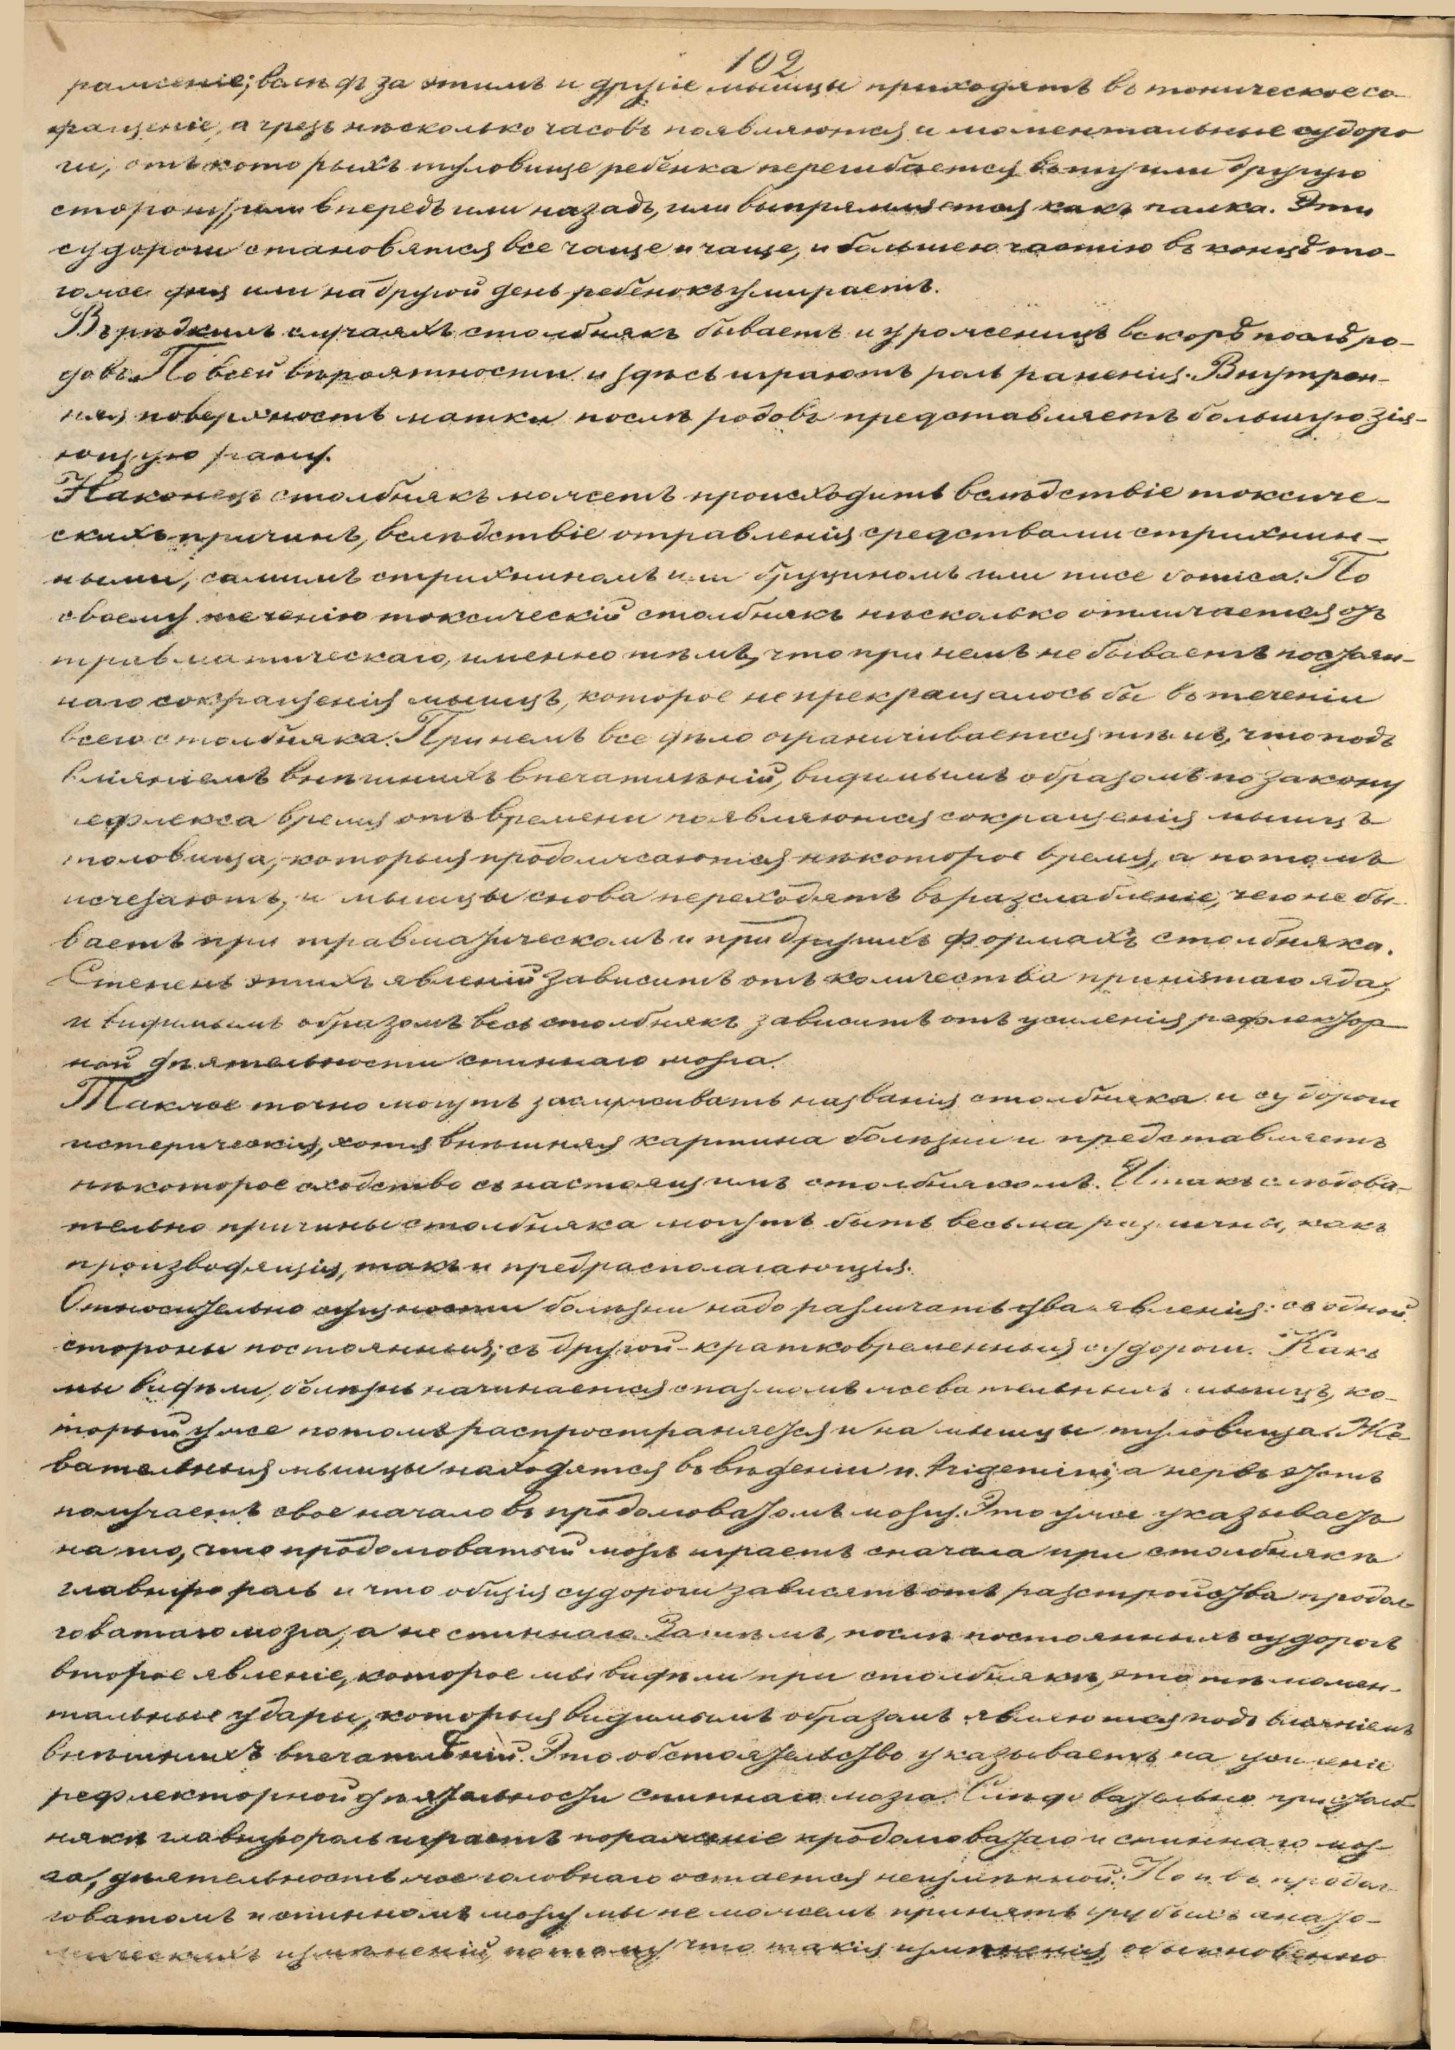 102
раженіе; вслѣдъ за этимъ и другіе мышцы приходятъ въ тоническое со-
кращеніе, а чрезъ нѣсколько часовъ появляются и моментальные судоро
ги, отъ которыхъ туловище ребенка перегибается въ ту или другую
сторону, или впередъ или назадъ, или выпрямляется какъ палка. Эти
судороги становятся все чаще и чаще, и большею частію въ концѣ то-
гоже дня или на другой день ребенокъ умираетъ.
Въ рѣдкихъ случаяхъ столбнякъ бываетъ и у роженицъ вскорѣ послѣ ро-
довъ. По всей вѣроятности и здѣсь играютъ роль раненія. Внутрен-
няя поверхность матки послѣ родовъ представляетъ большую зія-
ющую рану.
Наконецъ столбнякъ можетъ происходить вслѣдствіе токсиче-
скихъ причинъ, вслѣдствіе отравленія средствами стрихнин-
ными, самимъ стрихниномъ или бруциномъ или nuce vomica. По
своему теченію токсическій столбнякъ нѣсколько отличается отъ
травматическаго, именно тѣмъ, что при немъ не бываетъ постоян-
наго сокращенія мышцъ, которое не прекращалось бы въ теченіи
всего столбняка. При немъ все дѣло ограничивается тѣмъ, что подъ
вліяніемъ внѣшнихъ впечатлѣній, видимымъ образомъ по закону
рефлекса время отъ времени появляются сокращенія мышцъ
толовища, которыя продолжаются нѣкоторое время, а потомъ
исчезаютъ, и мышцы снова переходятъ въ разслабленіе, чего не бы-
ваетъ при травматическомъ и при другихъ формахъ столбняка.
Степень этихъ явленій зависитъ отъ количества принятаго яда,
и видимымъ образомъ весь столбнякъ зависитъ отъ усиленія рефлектор
ной дѣятельности спиннаго мозга.
Также точно могутъ заслуживать названія столбняка и судороги
истерическія, хотя внѣшняя картина болѣзни и представляетъ
нѣкоторое сходство съ настоящимъ столбнякомъ. Итакъ слѣдова-
тельно причины столбняка могутъ быть весьма различны, какъ
производящія, такъ и предрасполагающія.
Относительно сущности болѣзни надо различать два явленія: съ одной
стороны постоянныя, съ другой - кратковременныя судороги. Какъ
мы видѣли, болѣзнь начинается спазмомъ жевательныхъ мышцъ, ко-
торый уже потомъ распространяется и на мышцы туловища. Же
вательныя мышцы находятся въ вѣденіи n. trigemini, а нервъ этотъ
получаетъ свое начало въ продолговатомъ мозгу. Это уже указываетъ
на то, что продолговатый мозгъ играетъ сначала при столбнякѣ
главную роль и что общія судороги зависятъ отъ разстройства продол
говатаго мозга, а не спиннаго. Затѣмъ, послѣ постоянныхъ судорогъ
второе явленіе, которое мы видѣли при столбнякѣ, это тѣ момен-
тальные удары, которыя видимымъ образомъ являются подъ вліяніемъ
внѣшнихъ впечатлѣній. Это обстоятельство указываетъ на усиленіе
рефлекторной дѣятельности спиннаго мозга. Слѣдовательно при столб
някѣ главную роль играетъ пораженіе продолговатаго и спиннаго моз-
га, дѣятельность же головнаго остается неизмѣнной. Но и въ продол
говатомъ и спинномъ мозгу мы не можемъ принять грубыхъ анато-
мическихъ измѣненій, потому что такія измѣненія обыкновенно